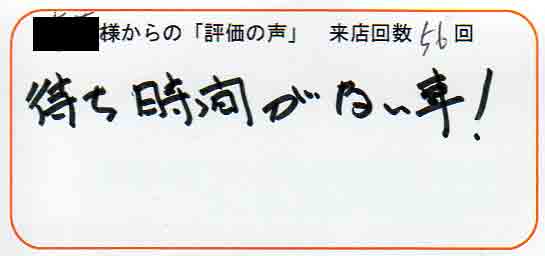 様からの「評価の声」　来店回数 56 回
待ち時間がない事!